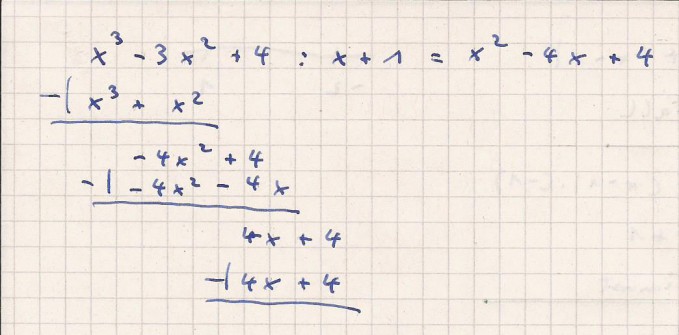 x³ - 3x² + 4 : x + 1 = x² - 4x + 4
-( x³ + x²
- 4x² + 4
-( - 4x² - 4x
4x + 4
-( 4x + 4